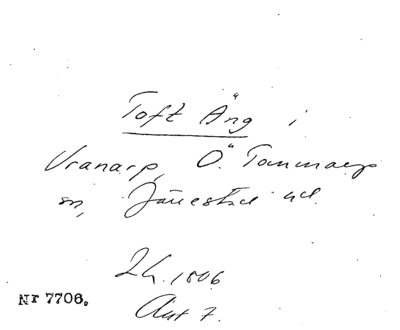 Toft Äng i
Vranarp, Ö. Tommarp
sn, Järrestad hd.
2h. 1806
Akt 7.
Nr 7706.